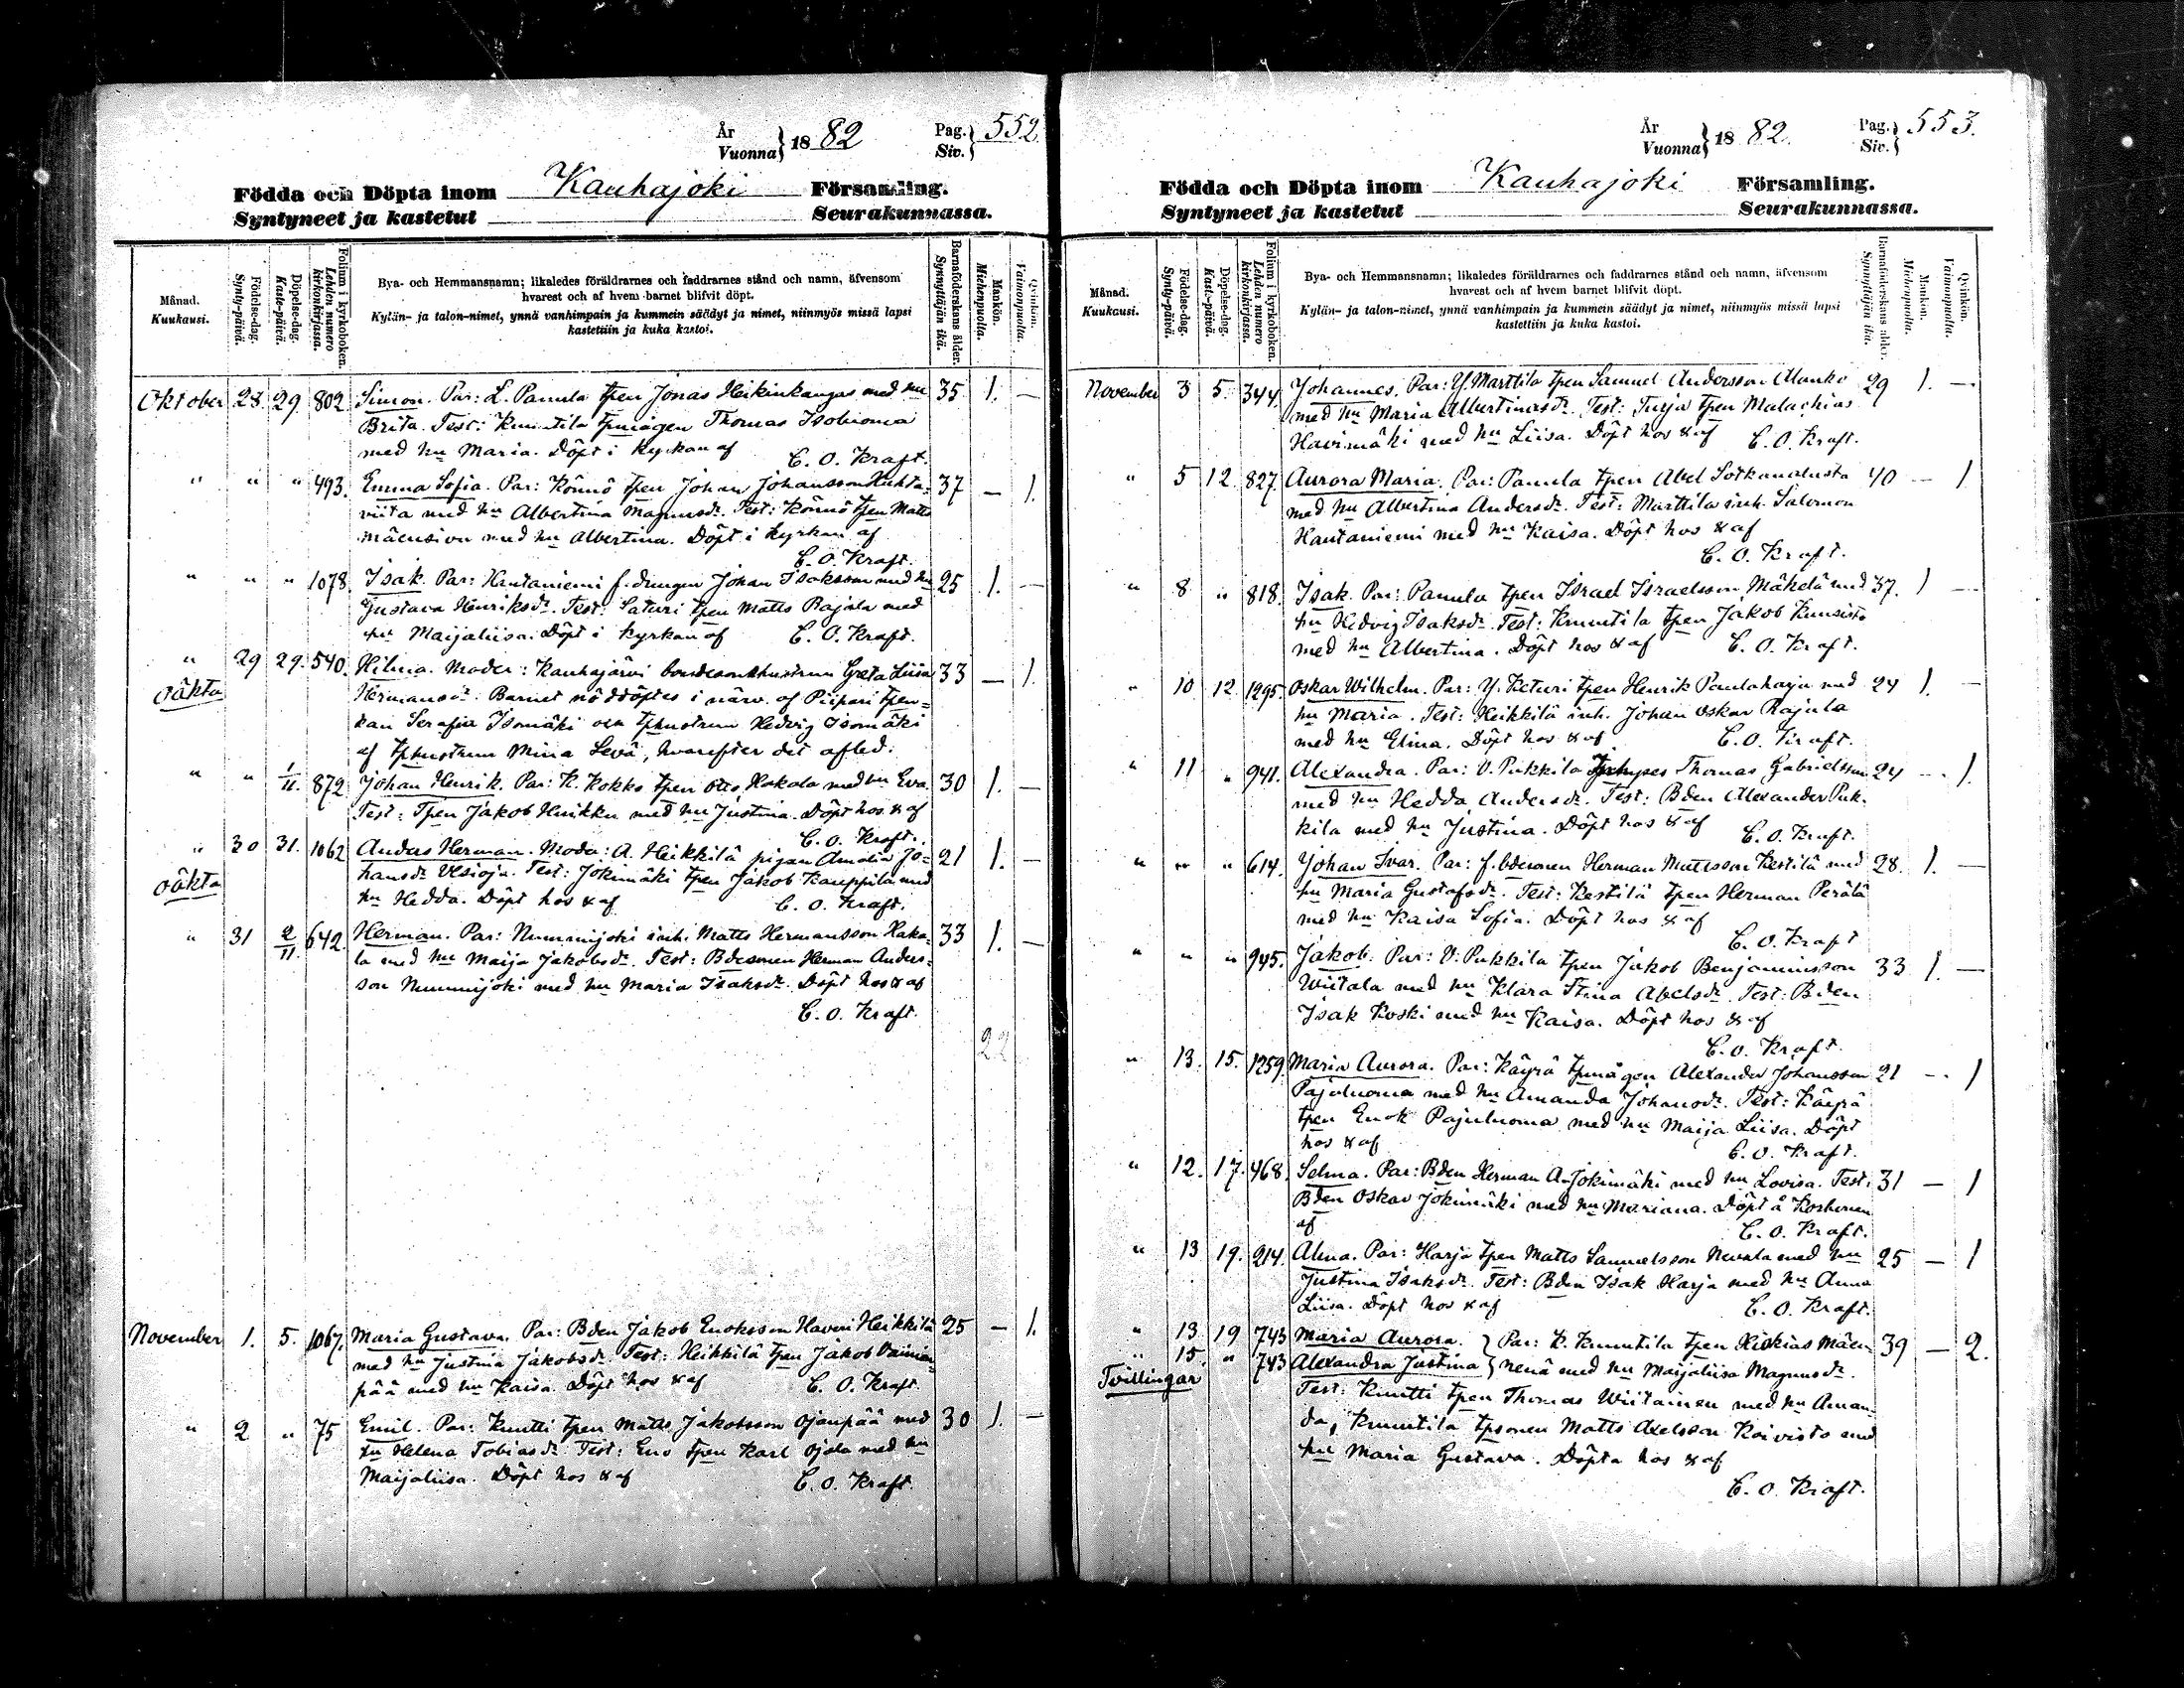 År
Vuonna } 1882 Pag. Siv. } 552.
Födda och Döpta inom Kauhajoki Församling.
Syntyneet ja kastetut Seurakunnassa.
Månad. Kuukausi.
Födelse-dag. Synty-päivä.
Döpelse-dag. Kaste-päivä.
Folium i kyrkoboken. Lehden numero kirkonkirjassa.
Bya- och Hemmansnamn; likaledes föräldrarnes och faddrarnes stånd och namn, äfvensom
hvarest och af hvem barnet blifvit döpt.
Kylän- ja talon-nimet, ynnä vanhimpain ja kummein säädyt ja nimet, niinmyös missä lapsi
kastettiin ja kuka kastoi.
Barnaföderskans ålder. Synnyttäjän ikä.
Mankön. Miehenpuolta.
Qvinkön. Vaimonpuolta.
Oktober 28. 29. 802. Simon. Par: L. Panula tpen Jonas Heikinkangas med hu 35 1. —
Brita. Test: Knuutila tpmågen Thomas Isoluoma
med hu Maria. Döpt i kyrkan af C. O. Kraft.
" " " 493. Emma Sofia. Par: Könnö tpen Johan Johansson Huhta= 37 — 1.
viita med hu Albertina Magnusdr. Test: Könnö tpen Matts
Mäensivu med hu Albertina. Döpt i kyrkan af
C. O. Kraft.
" " " 1078. Isak. Par: Hautaniemi f. drengen Johan Isaksson med hu 25 1. —
Gustava Henriksdr. Test: Saturi tpen Matts Rajala med
hu Maijaliisa. Döpt i kyrkan af C. O. Kraft.
" 29 29. 540. Hilma. Moder: Kauhajärvi bondesonhustrun Greta Liisa 33 — 1.
oäkta Hermansdr. Barnet nöddöptes i närv. af Piipari tpen=
kan Serafia Isomäki och tphustrun Hedvig Isomäki
af tphustrun Mina Levä, hvarefter det afled.
" " 1/11. 872. Johan Henrik. Par: K. Kokko tpen Otto Hakala med hu Eva. 30 1. —
Test: Tpen Jakob Huikku med hu Justina. Döpt hos & af
C. O. Kraft.
" 30 31. 1062 Anders Herman. Moder: A. Heikkilä pigan Amalia Jo= 21 1. —
oäkta hansdr Ylsioja. Test: Jokimäki tpen Jakob Kauppila med
hu Hedda. Döpt hos & af C. O. Kraft.
" 31 2/11. 642. Herman. Par: Nummijoki inh. Matts Hermansson Haka= 33 1. —
la med hu Maija Jakobsdr. Test: Bdesonen Herman Anders=
son Nummijoki med hu Maria Isaksdr. Döpt hos & af
C. O. Kraft.
22
November 1. 5. 1067. Maria Gustava. Par: Bden Jakob Enoksson Haveri Heikkilä 25 — 1.
med hu Justina Jakobsdr. Test: Heikkilä tpen Jakob Vainion=
pää med hu Kaisa. Döpt hos & af C. O. Kraft.
" 2 " 75 Emil. Par: Knutti tpen Matts Jakobsson Ojanpää med 30 1. —
hu Helena Tobiasdr. Test: Eno tpen Karl Ojala med hu
Maijaliisa. Döpt hos & af C. O. Kraft.
År
Vuonna } 1882. Pag. Siv. } 553.
Födda och Döpta inom Kauhajoki Församling.
Syntyneet ja kastetut Seurakunnassa.
Månad. Kuukausi.
Födelse-dag. Synty-päivä.
Döpelse-dag. Kaste-päivä.
Folium i kyrkoboken. Lehden numero kirkonkirjassa.
Bya- och Hemmansnamn; likaledes föräldrarnes och faddrarnes stånd och namn, äfvensom
hvarest och af hvem barnet blifvit döpt.
Kylän- ja talon-nimet, ynnä vanhimpain ja kummein säädyt ja nimet, niinmyös missä lapsi
kastettiin ja kuka kastoi.
Barnaföderskans ålder. Synnyttäjän ikä.
Mankön. Miehenpuolta.
Qvinkön. Vaimonpuolta.
November 3 5. 344. Johannes. Par: Y. Marttila tpen Samuel Andersson Alanko 29 1. —
med hu Maria Albertinasdr. Test: Turja tpen Malachias
Harjamäki med hu Liisa. Döpt hos & af C. O. Kraft.
" 5 12. 827. Aurora Maria. Par: Panula tpen Abel Sotkanalusta 40 — 1
med hu Albertina Andersdr. Test: Marttila inh. Salomon
Hautaniemi med hu Kaisa. Döpt hos & af
C. O. Kraft.
" 8 " 818. Isak. Par: Panula tpen Israel Israelsson Mäkelä med 37. 1 —
hu Hedvig Isaksdr. Test: Knuutila tpen Jakob Kuusisto
med hu Albertina. Döpt hos & af C. O. Kraft.
" 10 12. 1295. Oskar Wilhelm. Par: Y. Keturi tpen Henrik Paulaharju med 24 1. —
hu Maria. Test: Heikkilä inh. Johan Oskar Rajala
med hu Elina. Döpt hos & af C. O. Kraft.
" 11 " 941. Alexandra. Par: V. Pukkila tphyses Thomas Gabrielsson 24 — 1.
med hu Hedda Andersdr. Test: Bden Alexander Puk=
kila med hu Justina. Döpt hos & af C. O. Kraft.
" " " 614. Johan Ivar. Par: f. bdesonen Herman Mattsson Kestilä med 28. 1. —
hu Maria Gustafsdr. Test: Kestilä tpen Herman Perälä
med hu Kaisa Sofia. Döpt hos & af
C. O. Kraft
" " " 945. Jakob. Par: V. Pukkila tpen Jakob Benjaminsson 33 1. —
Wiitala med hu Klara Stina Abelsdr. Test: Bden
Isak Koski med hu Kaisa. Döpt hos & af
C. O. Kraft.
" 13. 15. 1259. Maria Aurora. Par: Käyrä tpmågen Alexander Johansson 21 — 1
Pajuluoma med hu Amanda Johansdr. Test: Käyrä
tpen Enok Pajuluoma med hu Maija Liisa. Döpt
hos & af C. O. Kraft.
" 12. 17. 468. Selma. Par: Bden Herman A-Jokimäki med hu Lovisa. Test: 31 — 1
Bden Oskar Jokimäki med hu Mariana. Döpt å Korhonen
af C. O. Kraft.
" 13 19. 214. Alma. Par: Harja tpen Matts Samuelsson Nevala med hu 25 — 1
Justina Isaksdr. Test: Bden Isak Harja med hu Anna
Liisa. Döpt hos & af C. O. Kraft.
" 13 19 743 Maria Aurora. } Par: K. Knuutila tpen Hiskias Mäen= 39 — 2.
" 15. " 743 Alexandra Justina } nenä med hu Maijaliisa Magnusdr.
Tvillingar Test: Knutti tpen Thomas Wiitainen med hu Aman=
da, Knuutila tpsonen Matts Axelsson Koivisto med
hu Maria Gustava. Döpta hos & af
C. O. Kraft.